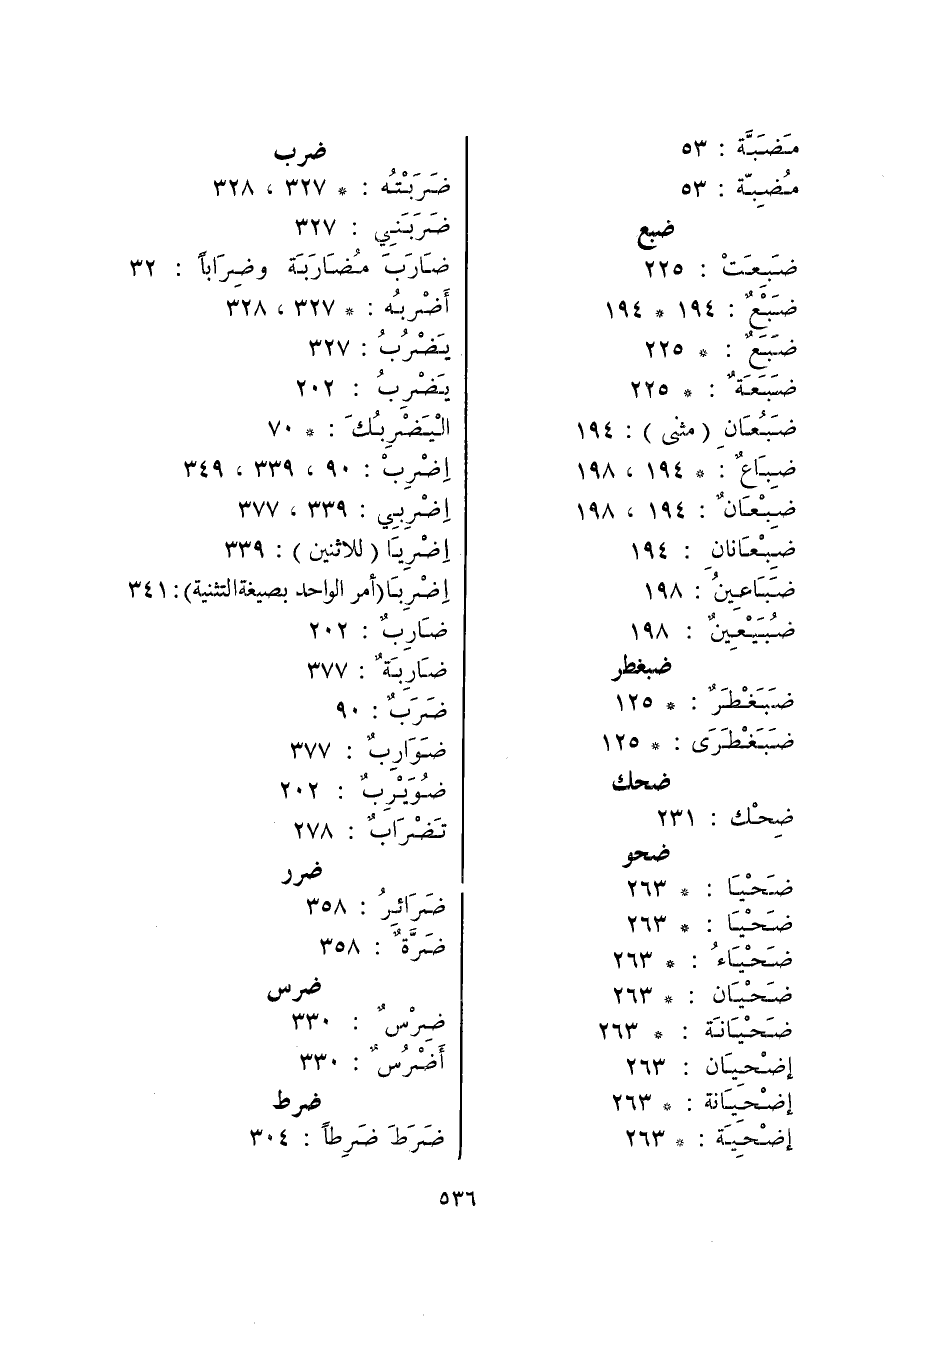 مَضَبَّة : ٥٣
مُضِبّة : ٥٣
ضبع
ضَبِعَتْ : ٢٢٥
ضَبْعٌ : ١٩٤ * ١٩٤
ضَبَعٌ : * ٢٢٥
ضَبَعَةٌ : * ٢٢٥
ضَبُعَانِ ( مثنى ) : ١٩٤
ضِبَاعٌ : * ١٩٤ ، ١٩٨
ضِبْعَانٌ : ١٩٤ ، ١٩٨
ضِبْعَانانِ : ١٩٤
ضَبَاعِينُ : ١٩٨
ضُبَيْعِينٌ : ١٩٨
ضبغطر
ضَبَغْطَرٌ : * ١٢٥
ضَبَغْطَرَى : * ١٢٥
ضحك
ضِحْك : ٢٣١
ضحو
ضَحْيَا : * ٢٦٣
ضَحْيَا : * ٢٦٣
ضَحْيَاءُ : * ٢٦٣
ضَحْيَان : * ٢٦٣
ضَحْيَانَة : * ٢٦٣
إضْحِيَان : ٢٦٣
إضْحِيَانة : * ٢٦٣
إضْحِيَة : * ٢٦٣
ضرب
ضَرَبْتُه : * ٣٢٧ ، ٣٢٨
ضَرَبَنِي : ٣٢٧
ضَارَبَ مُضَارَبَة وضِرَاباً : ٣٢
أَضْرِبُه : * ٣٢٧ ، ٣٢٨
يَضْرُبُ : ٣٢٧
يَضْرِبُ : ٢٠٢
الْيَضْرِبُكَ : * ٧٠
إِضْرِبْ : ٩٠ ، ٣٣٩ ، ٣٤٩
إِضْرِبِي : ٣٣٩ ، ٣٧٧
إِضْرِبَا ( للاثنين ) : ٣٣٩
إِضْرِبَا (أمر الواحد بصيغة التثنية) : ٣٤١
ضَارِبٌ : ٢٠٢
ضَارِبَةٌ : ٣٧٧
ضَرَبٌ : ٩٠
ضَوَارِبٌ : ٣٧٧
ضُوَيْرِبٌ : ٢٠٢
تَضْرَابٌ : ٢٧٨
ضرر
ضَرَائِرُ : ٣٥٨
ضَرَّةٌ : ٣٥٨
ضرس
ضِرْسٌ : ٣٣٠
أَضْرُسٌ : ٣٣٠
ضرط
ضَرَطَ ضَرِطاً : ٣٠٤
٥٣٦